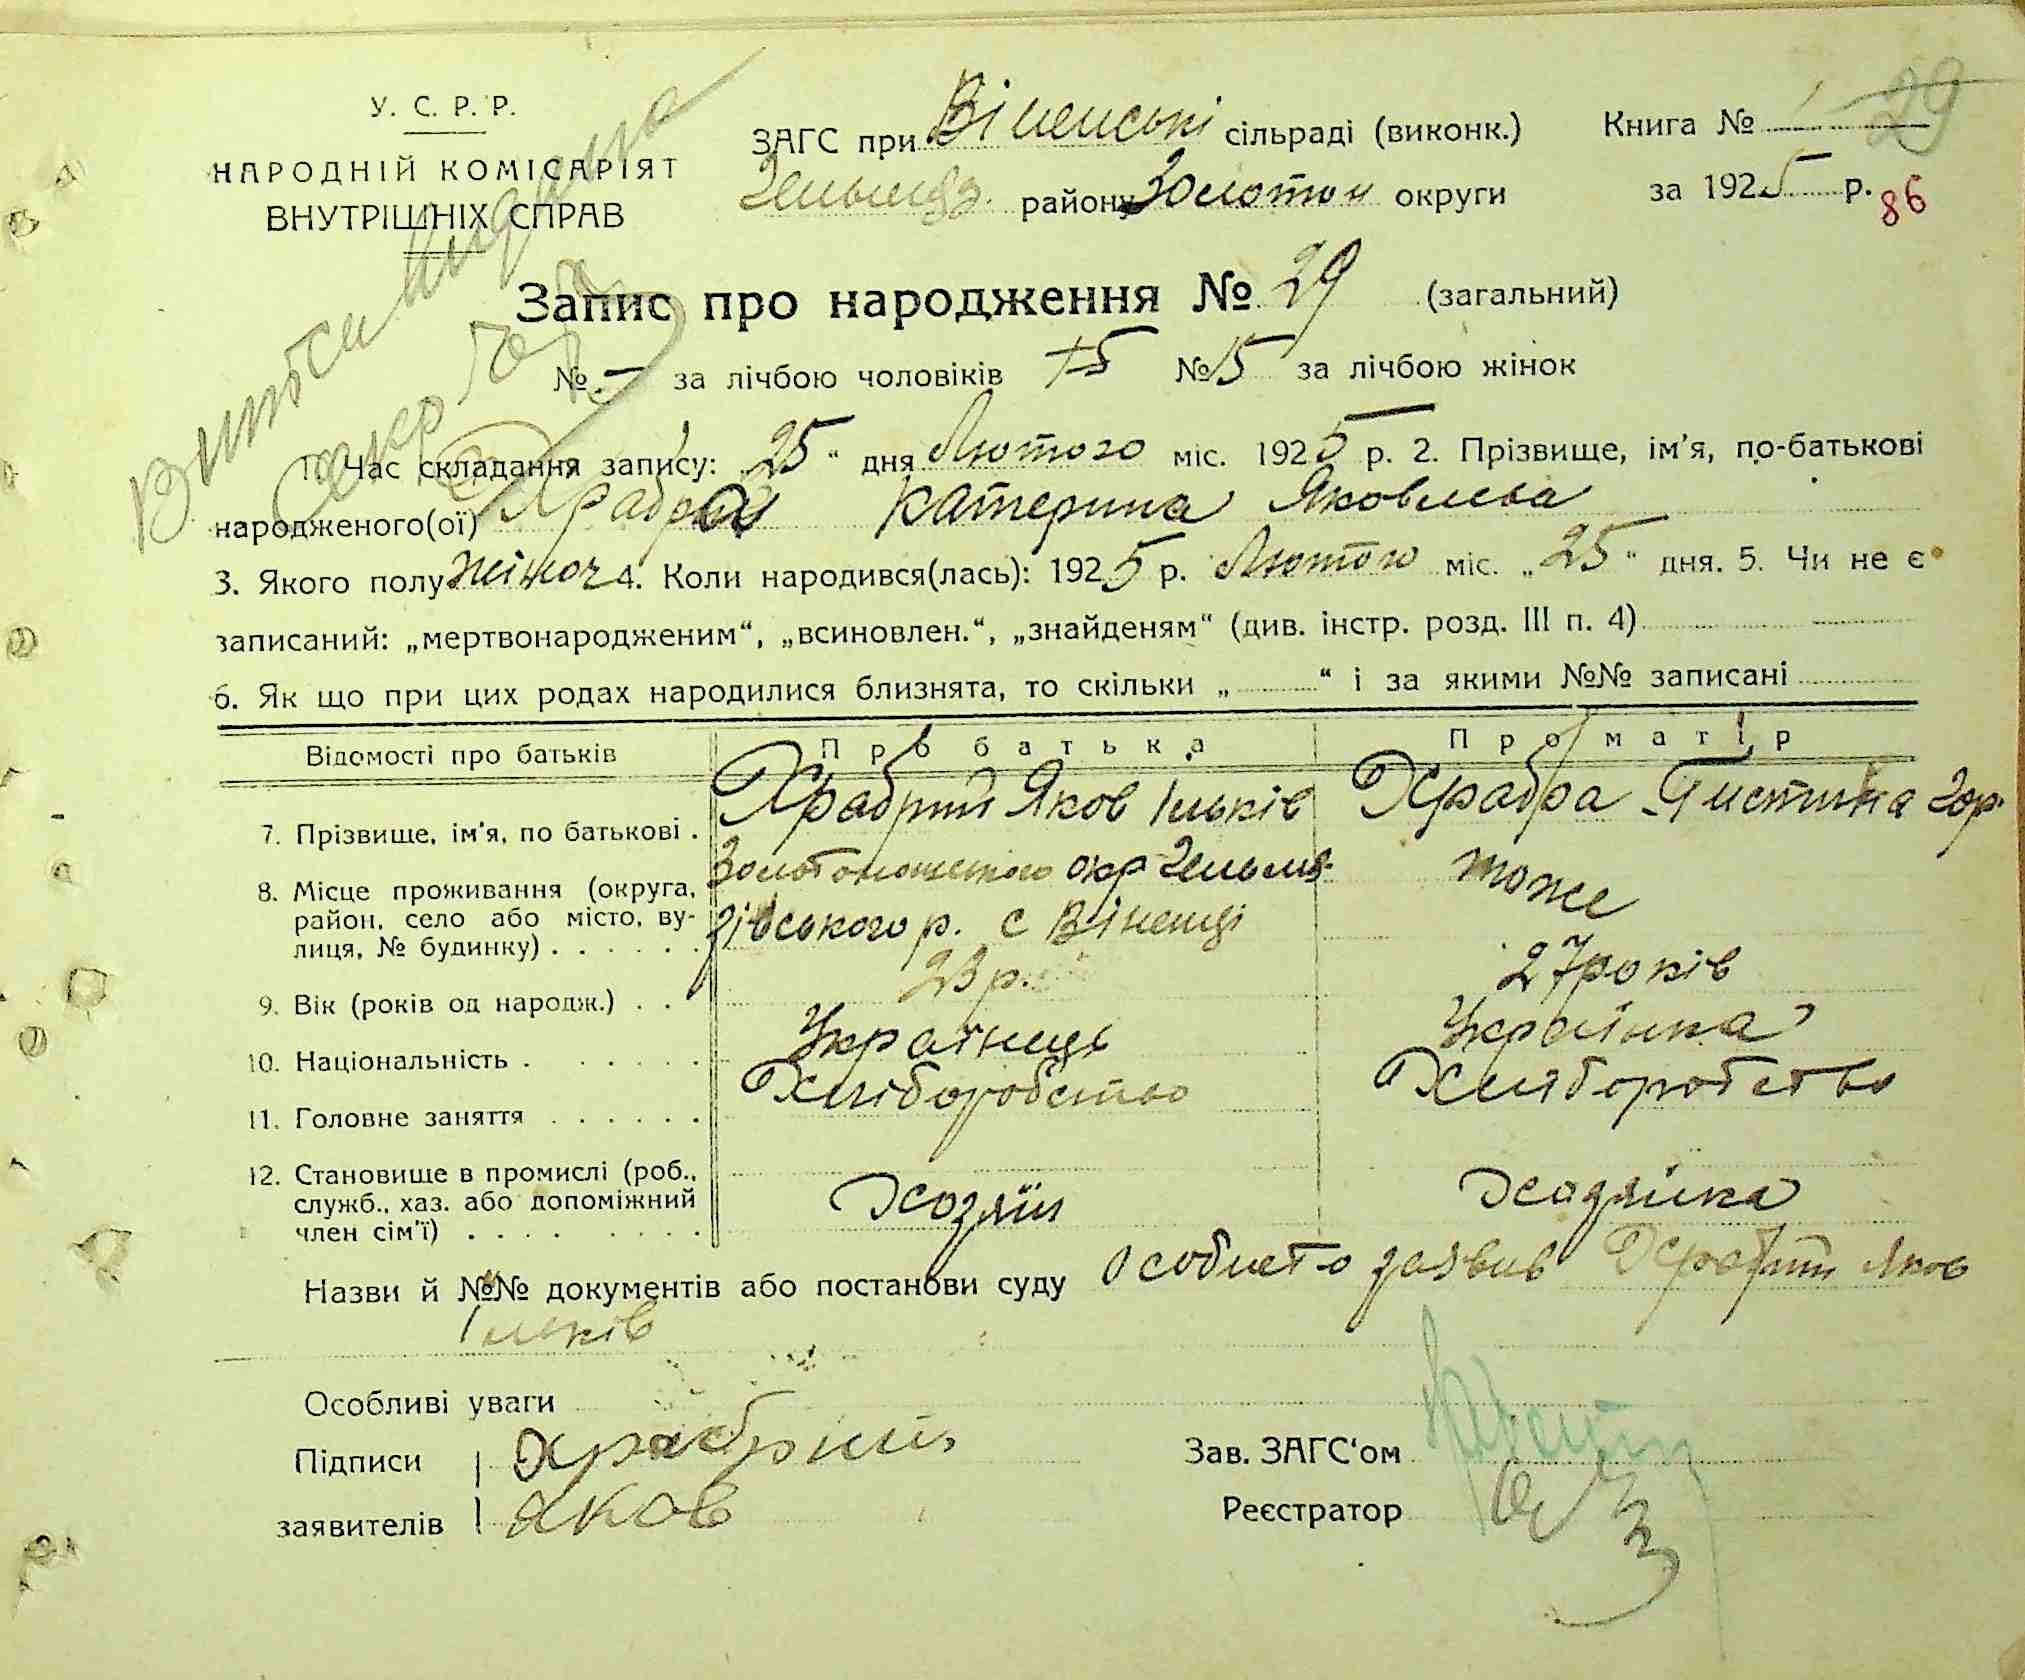 У. С. Р. Р.
НАРОДНІЙ КОМІСАРІЯТ
ВНУТРІШНІХ СПРАВ
ЗАГС при Віненські сільраді (виконк.)
району Золотон округи
Книга № 1 29
за 1925 р. 86
Запис про народження № 29 (загальний)
№ - за лічбою чоловіків 15 № 15 за лічбою жінок
1. Час складання запису: „25“ дня Лютого міс. 1925 р. 2. Прізвище, ім'я, по-батькові
народженого(ої) Храбра Катерина Яковлева
3. Якого полу жіноч 4. Коли народився(лась): 1925 р. Лютого міс. „25“ дня. 5. Чи не є
записаний: „мертвонародженим“, „всиновлен.“, „знайденям“ (див. інстр. розд. III п. 4)
6. Як що при цих родах народилися близнята, то скільки „ “ і за якими №№ записані
Відомості про батьків Про батька Про матір
7. Прізвище, ім'я, по батькові . Храбрий Яков Ільків Храбра Пистина Гор.
8. Місце проживання (округа, район, село або місто, вулиця, № будинку) . . . . . . окр Гельмязівського р. с Віненці тоже
9. Вік (років од народж.) . . 23 р. 27 років
10. Національність . . . . . . Українець Українка
11. Головне заняття . . . . . . Хліборобство Хліборобство
12. Становище в промислі (роб., служб., хаз. або допоміжний член сім'ї) . . . . . . . . Хозяїн Хозяїнка
Назви й №№ документів або постанови суду Особисто заявив Храбрий Яков
Ільків
Особливі уваги
Підписи Храбрий
заявителів Яков
Зав. ЗАГС'ом
Реєстратор